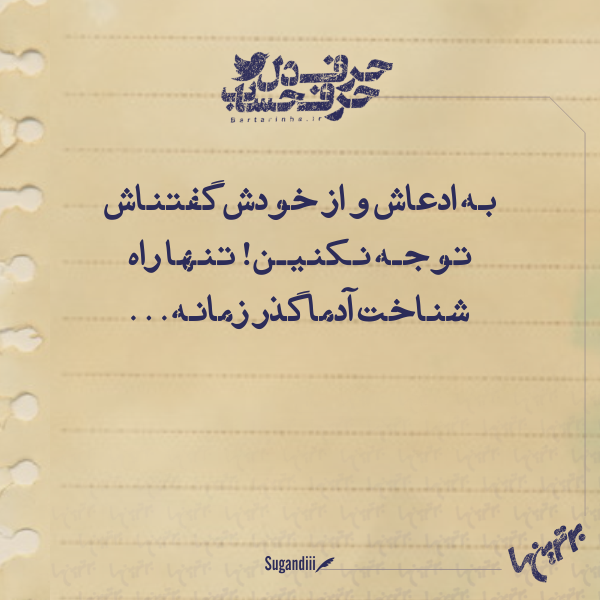 حرف دل
حرف حساب
Bartarinha.ir
به ادعاش و از خودش گفتناش
توجه نکنین! تنها راه
شناخت آدما گذر زمانه...
Sugandiii
برترین‌ها